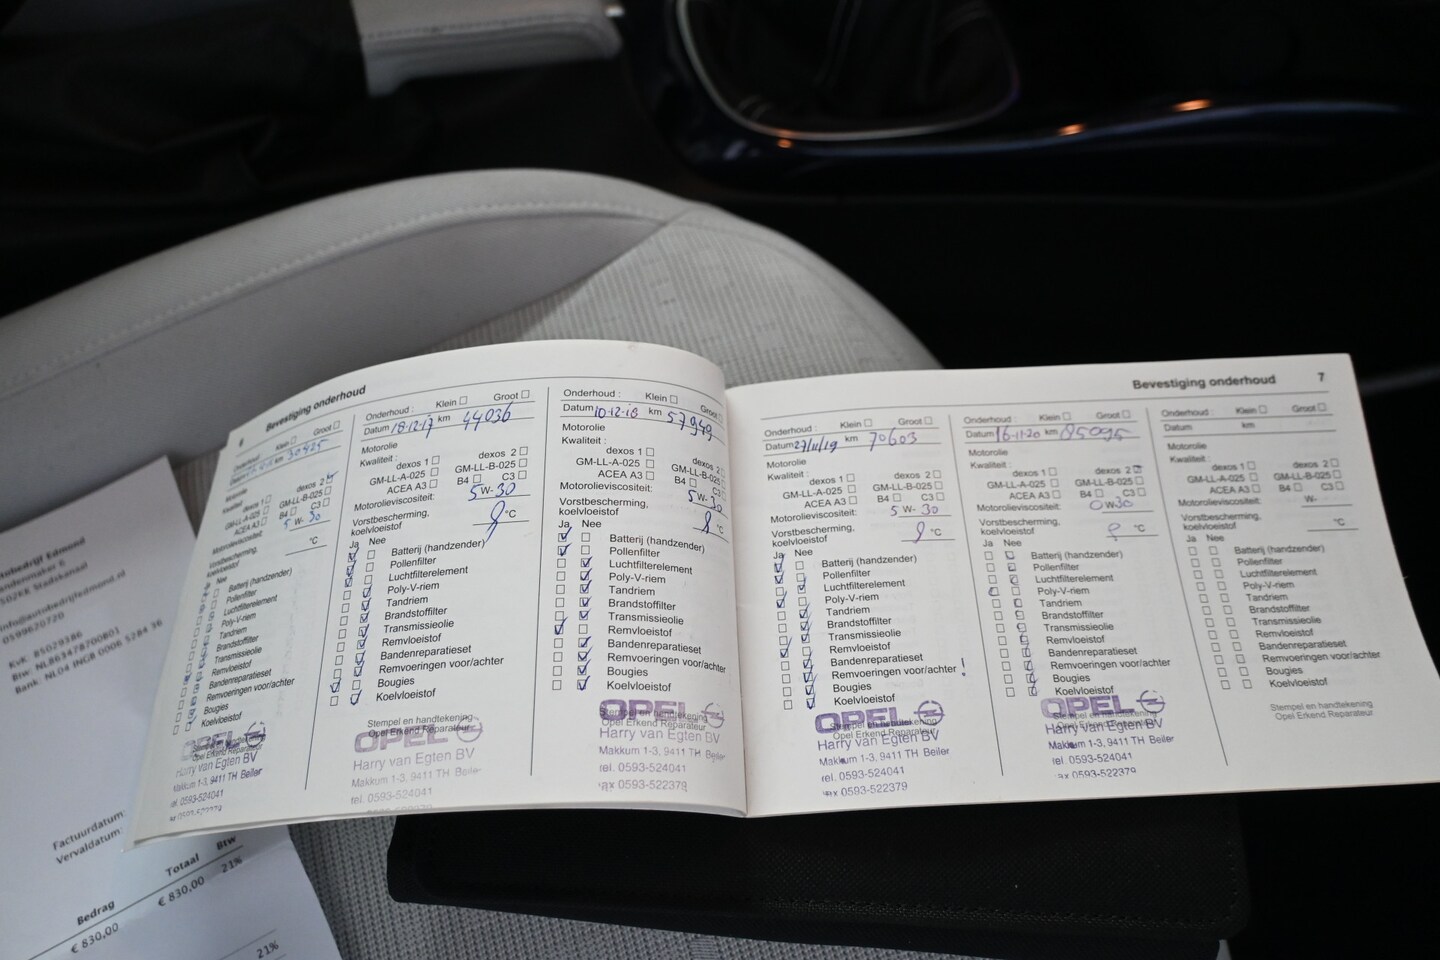 nbedrijf Edmond
info@autobedrijfedmond.nl
0599620720
KvK: 85029386
Btw: NL863478700B01
Bank: NL04 INGB 0006 5284 36
Factuurdatum:
Vervaldatum:
Bedrag Totaal Btw
€ 830,00 € 830,00 21%
21%
6 Bevestiging onderhoud
Onderhoud : Klein Groot
30425
Motorolie
Kwaliteit :
dexos 1 dexos 2
GM-LL-A-025 GM-LL-B-025
ACEA A3 B4 C3
Motorolieviscositeit:
5 W- 30
Vorstbescherming,
koelvloeistof °C
Ja Nee
Batterij (handzender)
Pollenfilter
Luchtfilterelement
Poly-V-riem
Tandriem
Brandstoffilter
Transmissieolie
Remvloeistof
Bandenreparatieset
Remvoeringen voor/achter
Bougies
Koelvloeistof
Stempel en handtekening
Opel Erkend Reparateur
OPEL
Harry van Egten BV
Makkum 1-3, 9411 TH Beiler
tel. 0593-524041
Onderhoud : Klein Groot
Datum 18-12-17 km 44036
Motorolie
Kwaliteit :
dexos 1 dexos 2
GM-LL-A-025 GM-LL-B-025
ACEA A3 B4 C3
Motorolieviscositeit: 5 W- 30
Vorstbescherming,
koelvloeistof °C
Ja Nee
Batterij (handzender)
Pollenfilter
Luchtfilterelement
Poly-V-riem
Tandriem
Brandstoffilter
Transmissieolie
Remvloeistof
Bandenreparatieset
Remvoeringen voor/achter
Bougies
Koelvloeistof
Stempel en handtekening
Opel Erkend Reparateur
OPEL
Harry van Egten BV
Makkum 1-3, 9411 TH Beiler
tel. 0593-524041
Onderhoud : Klein Groot
Datum 10-12-18 km 57949
Motorolie
Kwaliteit :
dexos 1 dexos 2
GM-LL-A-025 GM-LL-B-025
ACEA A3 B4 C3
Motorolieviscositeit: 5 W- 30
Vorstbescherming,
koelvloeistof °C
Ja Nee
Batterij (handzender)
Pollenfilter
Luchtfilterelement
Poly-V-riem
Tandriem
Brandstoffilter
Transmissieolie
Remvloeistof
Bandenreparatieset
Remvoeringen voor/achter
Bougies
Koelvloeistof
Stempel en handtekening
Opel Erkend Reparateur
OPEL
Harry van Egten BV
Makkum 1-3, 9411 TH Beiler
tel. 0593-524041
fax 0593-522379
Bevestiging onderhoud 7
Onderhoud : Klein Groot
Datum 27/11/19 km 70603
Motorolie
Kwaliteit :
dexos 1 dexos 2
GM-LL-A-025 GM-LL-B-025
ACEA A3 B4 C3
Motorolieviscositeit: 5 W- 30
Vorstbescherming,
koelvloeistof °C
Ja Nee
Batterij (handzender)
Pollenfilter
Luchtfilterelement
Poly-V-riem
Tandriem
Brandstoffilter
Transmissieolie
Remvloeistof
Bandenreparatieset
Remvoeringen voor/achter !
Bougies
Koelvloeistof
Stempel en handtekening
Opel Erkend Reparateur
OPEL
Harry van Egten BV
Makkum 1-3, 9411 TH Beiler
tel. 0593-524041
fax 0593-522379
Onderhoud : Klein Groot
Datum 16-11-20 km 85095
Motorolie
Kwaliteit :
dexos 1 dexos 2
GM-LL-A-025 GM-LL-B-025
ACEA A3 B4 C3
Motorolieviscositeit: 0 W-30
Vorstbescherming,
koelvloeistof °C
Ja Nee
Batterij (handzender)
Pollenfilter
Luchtfilterelement
Poly-V-riem
Tandriem
Brandstoffilter
Transmissieolie
Remvloeistof
Bandenreparatieset
Remvoeringen voor/achter
Bougies
Koelvloeistof
Stempel en handtekening
Opel Erkend Reparateur
OPEL
Harry van Egten BV
Makkum 1-3, 9411 TH Beiler
tel. 0593-524041
fax 0593-522379
Onderhoud : Klein Groot
Datum km
Motorolie
Kwaliteit :
dexos 1 dexos 2
GM-LL-A-025 GM-LL-B-025
ACEA A3 B4 C3
Motorolieviscositeit: W-
Vorstbescherming,
koelvloeistof °C
Ja Nee
Batterij (handzender)
Pollenfilter
Luchtfilterelement
Poly-V-riem
Tandriem
Brandstoffilter
Transmissieolie
Remvloeistof
Bandenreparatieset
Remvoeringen voor/achter
Bougies
Koelvloeistof
Stempel en handtekening
Opel Erkend Reparateur